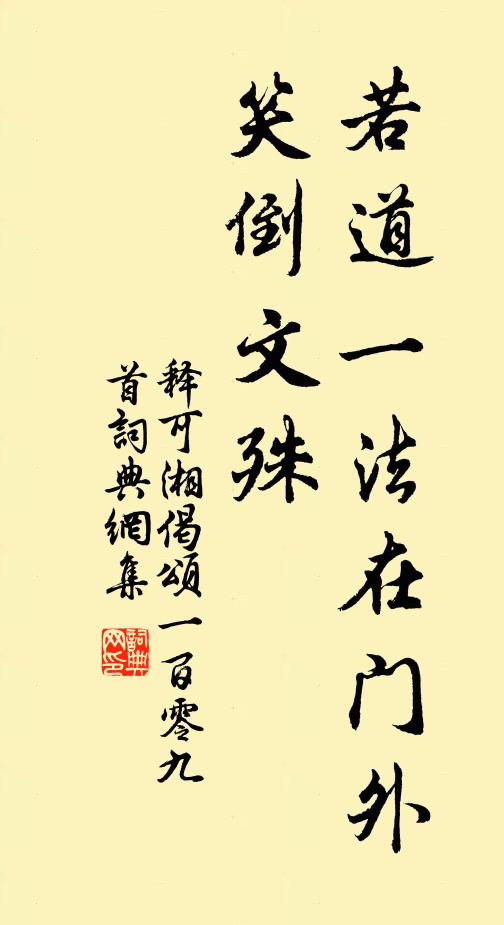 若道一法在门外
笑倒文殊
释可湘偈頌一百零九
首詞典網集
詞典
网印